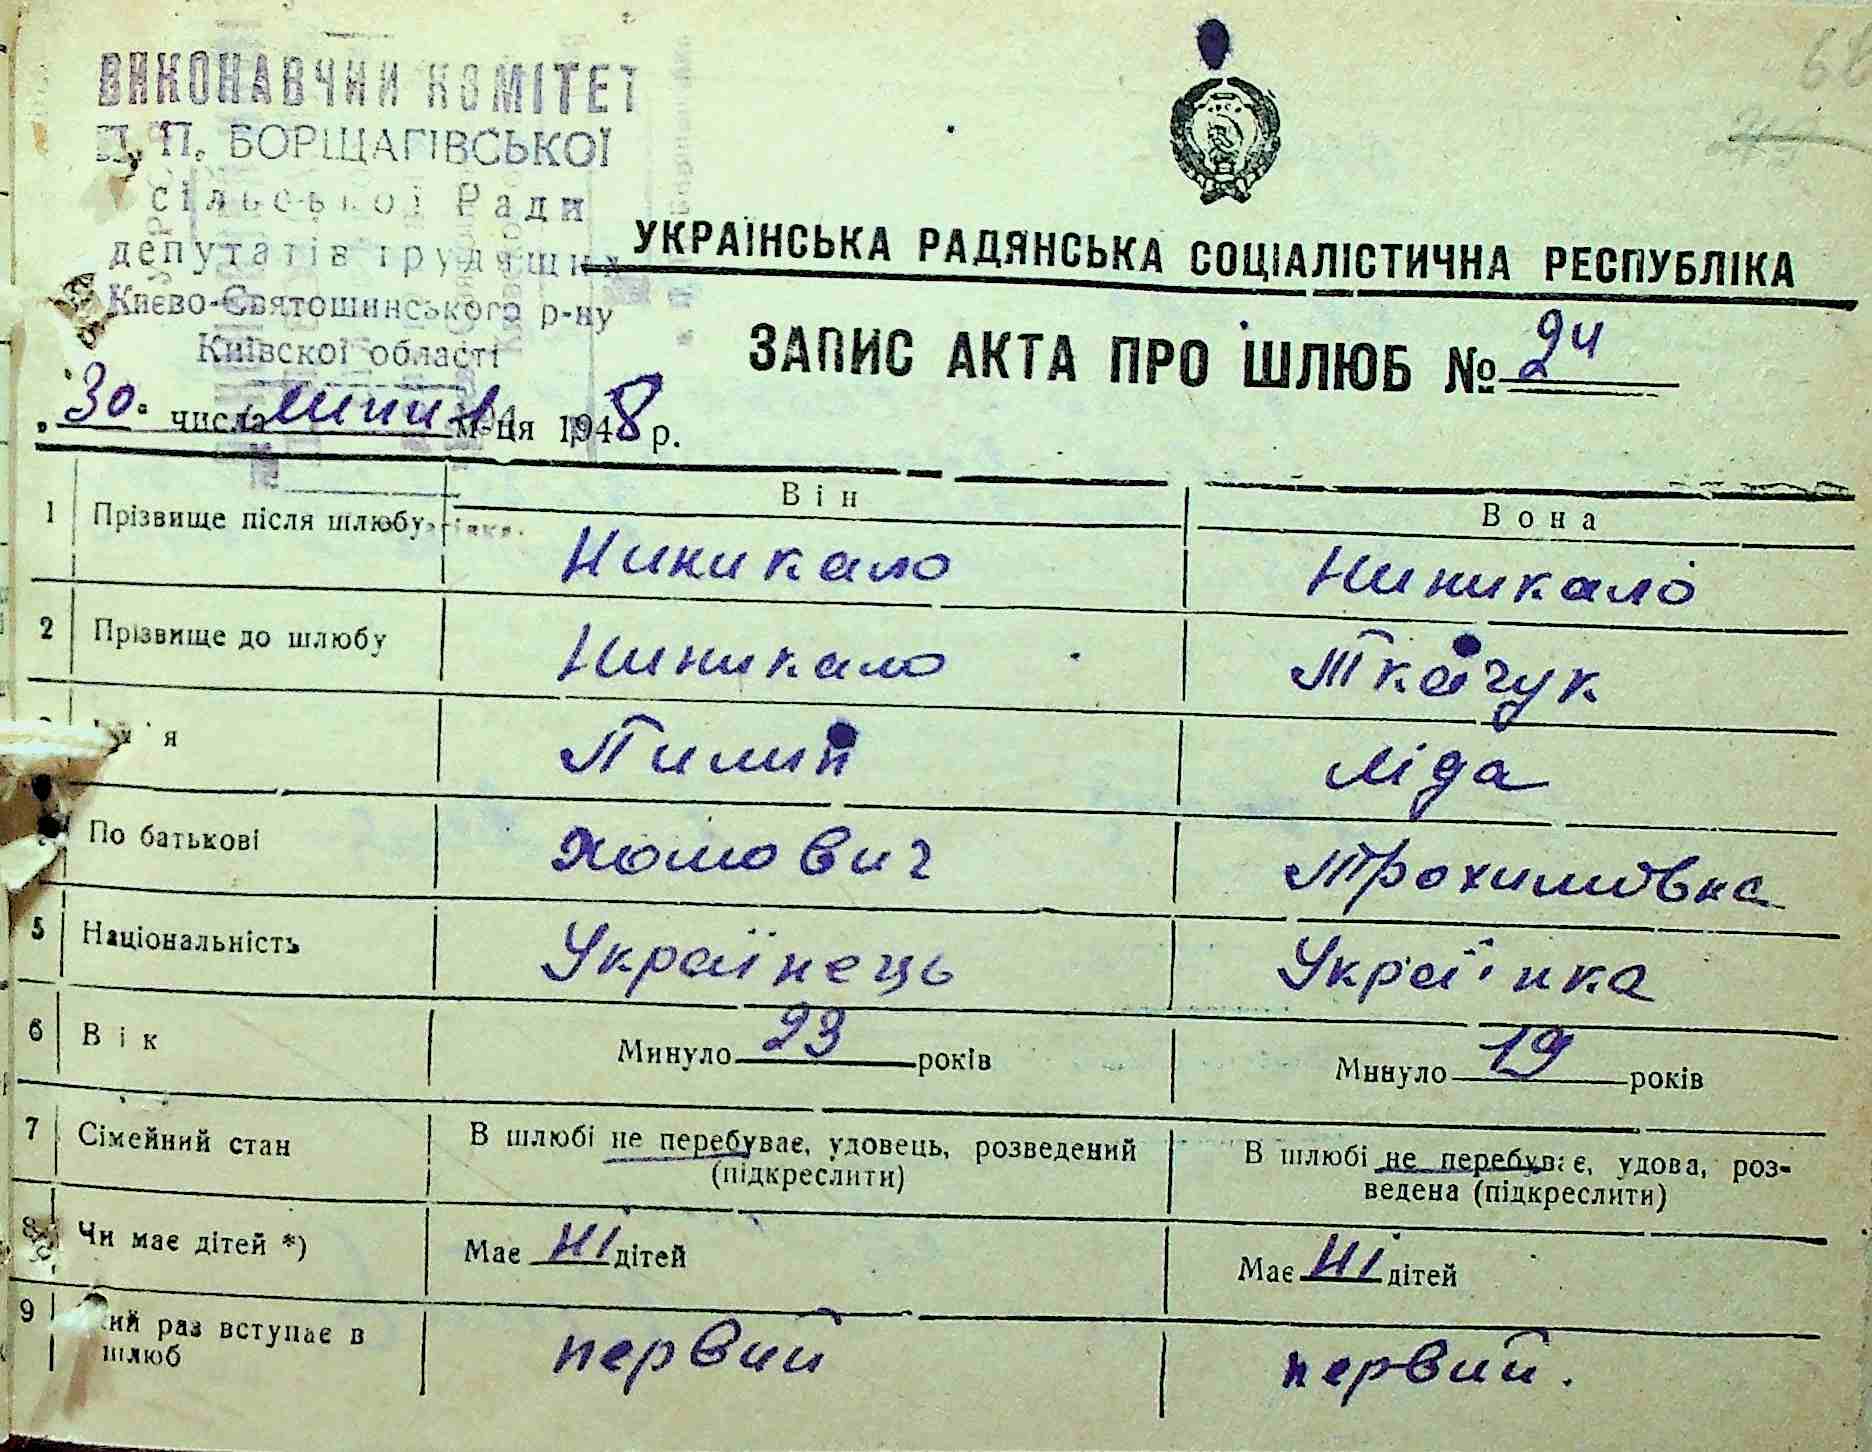 ВИКОНАВЧИЙ КОМІТЕТ
П. П. БОРЩАГІВСЬКОЇ
сільської Ради
депутатів трудящих
Києво-Святошинського р-ну
Київскої області
68
УКРАЇНСЬКА РАДЯНСЬКА СОЦІАЛІСТИЧНА РЕСПУБЛІКА
ЗАПИС АКТА ПРО ШЛЮБ № 24
„30" числа липня м-ця 1948 р.
Він Вона
1 Прізвище після шлюбу Ниникало Ниникало
2 Прізвище до шлюбу Ниникало Ткачук
Ім'я Пилип Ліда
По батькові Хомович Трохимовна
5 Національність Українець Українка
6 Вік Минуло 23 років Минуло 19 років
7 Сімейний стан В шлюбі не перебуває, удовець, розведений (підкреслити) В шлюбі не перебуває, удова, роз-
ведена (підкреслити)
8 Чи має дітей *) Має ні дітей Має ні дітей
9 який раз вступає в шлюб первий первий.